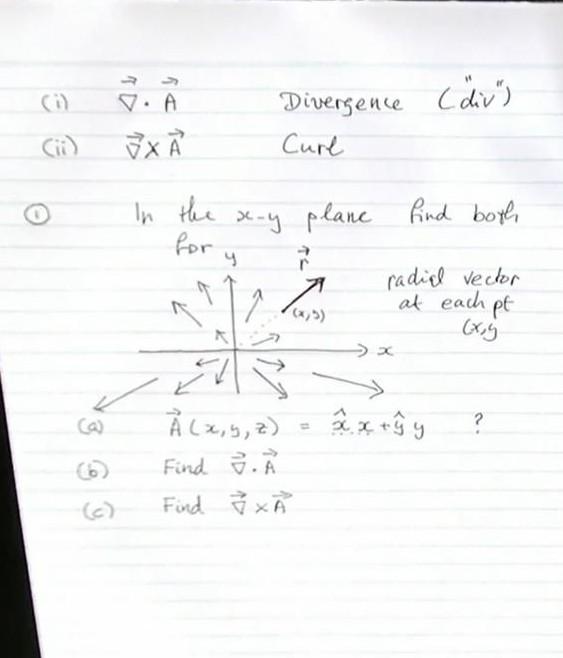 (i) ∇⃗ · A⃗ Divergence ("div")
(ii) ∇⃗ × A⃗ Curl
① In the x-y plane find both
for
y
r⃗
radial vector
at each pt
(x,y
(x,y)
x
(a) A⃗(x,y,z) = x̂ x + ŷ y ?
(b) Find ∇⃗ · A⃗
(c) Find ∇⃗ × A⃗